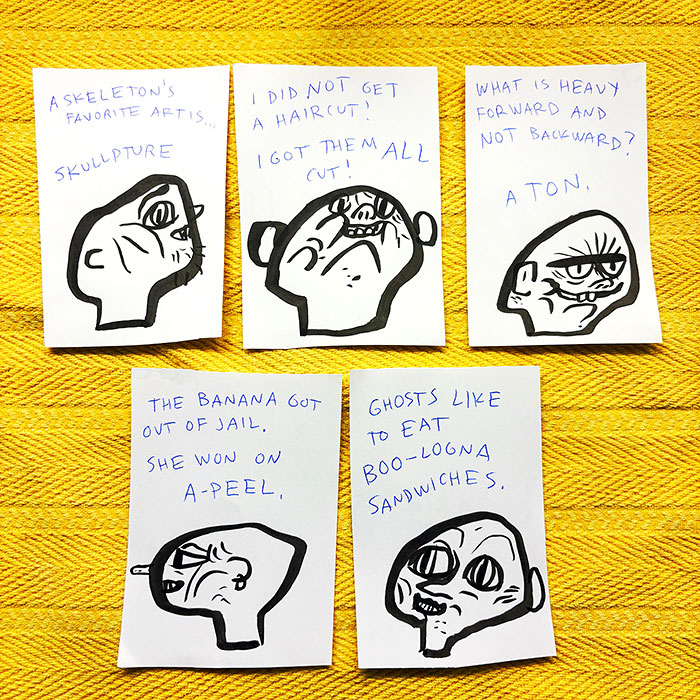 A SKELETON'S
FAVORITE ART IS...
SKULLPTURE
I DID NOT GET
A HAIRCUT!
I GOT THEM ALL
CUT!
WHAT IS HEAVY
FORWARD AND
NOT BACKWARD?
A TON.
THE BANANA GOT
OUT OF JAIL.
SHE WON ON
A-PEEL.
GHOSTS LIKE
TO EAT
BOO-LOGNA
SANDWICHES.